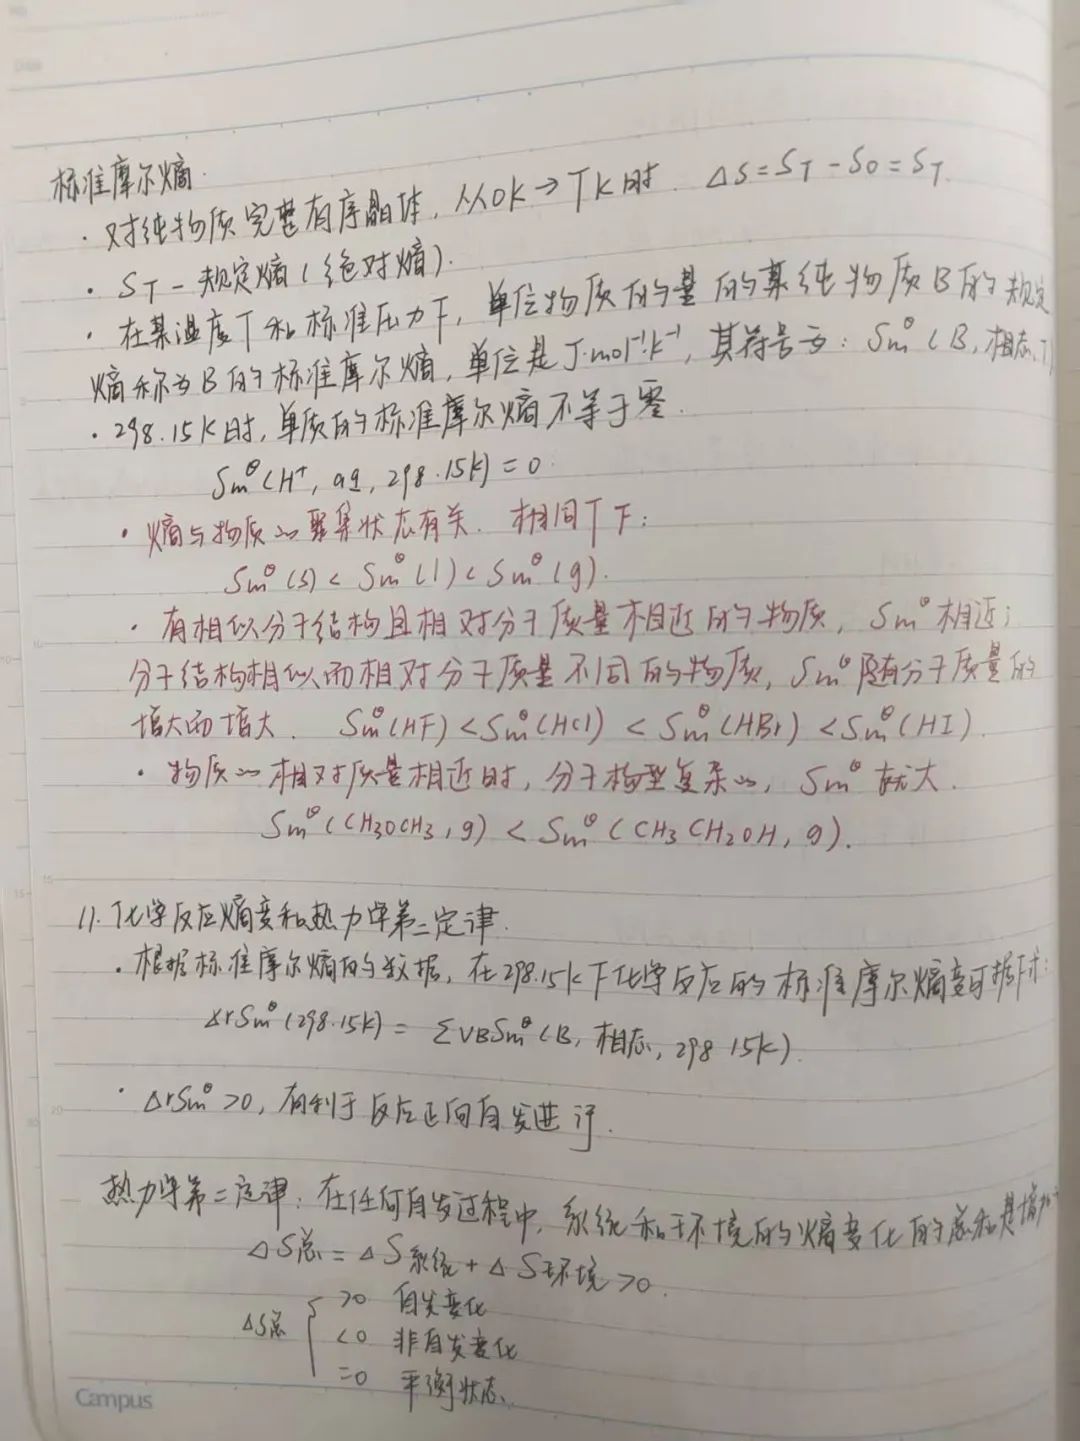 标准摩尔熵.
· 对纯物质完整有序晶体, 从0K→TK时. ΔS=ST-S0=ST.
· ST-规定熵(绝对熵).
· 在某温度T和标准压力下, 单位物质的量的某纯物质B的规定
熵称为B的标准摩尔熵, 单位是J·mol⁻¹·K⁻¹, 其符号为: Smᶿ(B,相态,T)
· 298.15K时, 单质的标准摩尔熵不等于零.
Smᶿ(H⁺, aq, 298.15K)=0.
· 熵与物质的聚集状态有关. 相同T下:
Smᶿ(s)<Smᶿ(l)<Smᶿ(g).
· 有相似分子结构且相对分子质量相近的物质, Smᶿ相近;
分子结构相似而相对分子质量不同的物质, Smᶿ随分子质量的
增大而增大. Smᶿ(HF)<Smᶿ(HCl)<Smᶿ(HBr)<Smᶿ(HI).
· 物质的相对质量相近时, 分子构型复杂的, Smᶿ就大.
Smᶿ(CH3OCH3, g)<Smᶿ(CH3CH2OH, g).
11. 化学反应熵变和热力学第二定律.
· 根据标准摩尔熵的数据, 在298.15K下化学反应的标准摩尔熵变可据下求:
ΔrSmᶿ(298.15K)=ΣVBSmᶿ(B, 相态, 298.15K).
· ΔrSmᶿ>0, 有利于反应正向自发进行.
热力学第二定律: 在任何自发过程中, 系统和环境的熵变化的总和是增加
ΔS总=ΔS系统+ΔS环境>0.
ΔS总 { >0 自发变化
<0 非自发变化
=0 平衡状态.
Campus